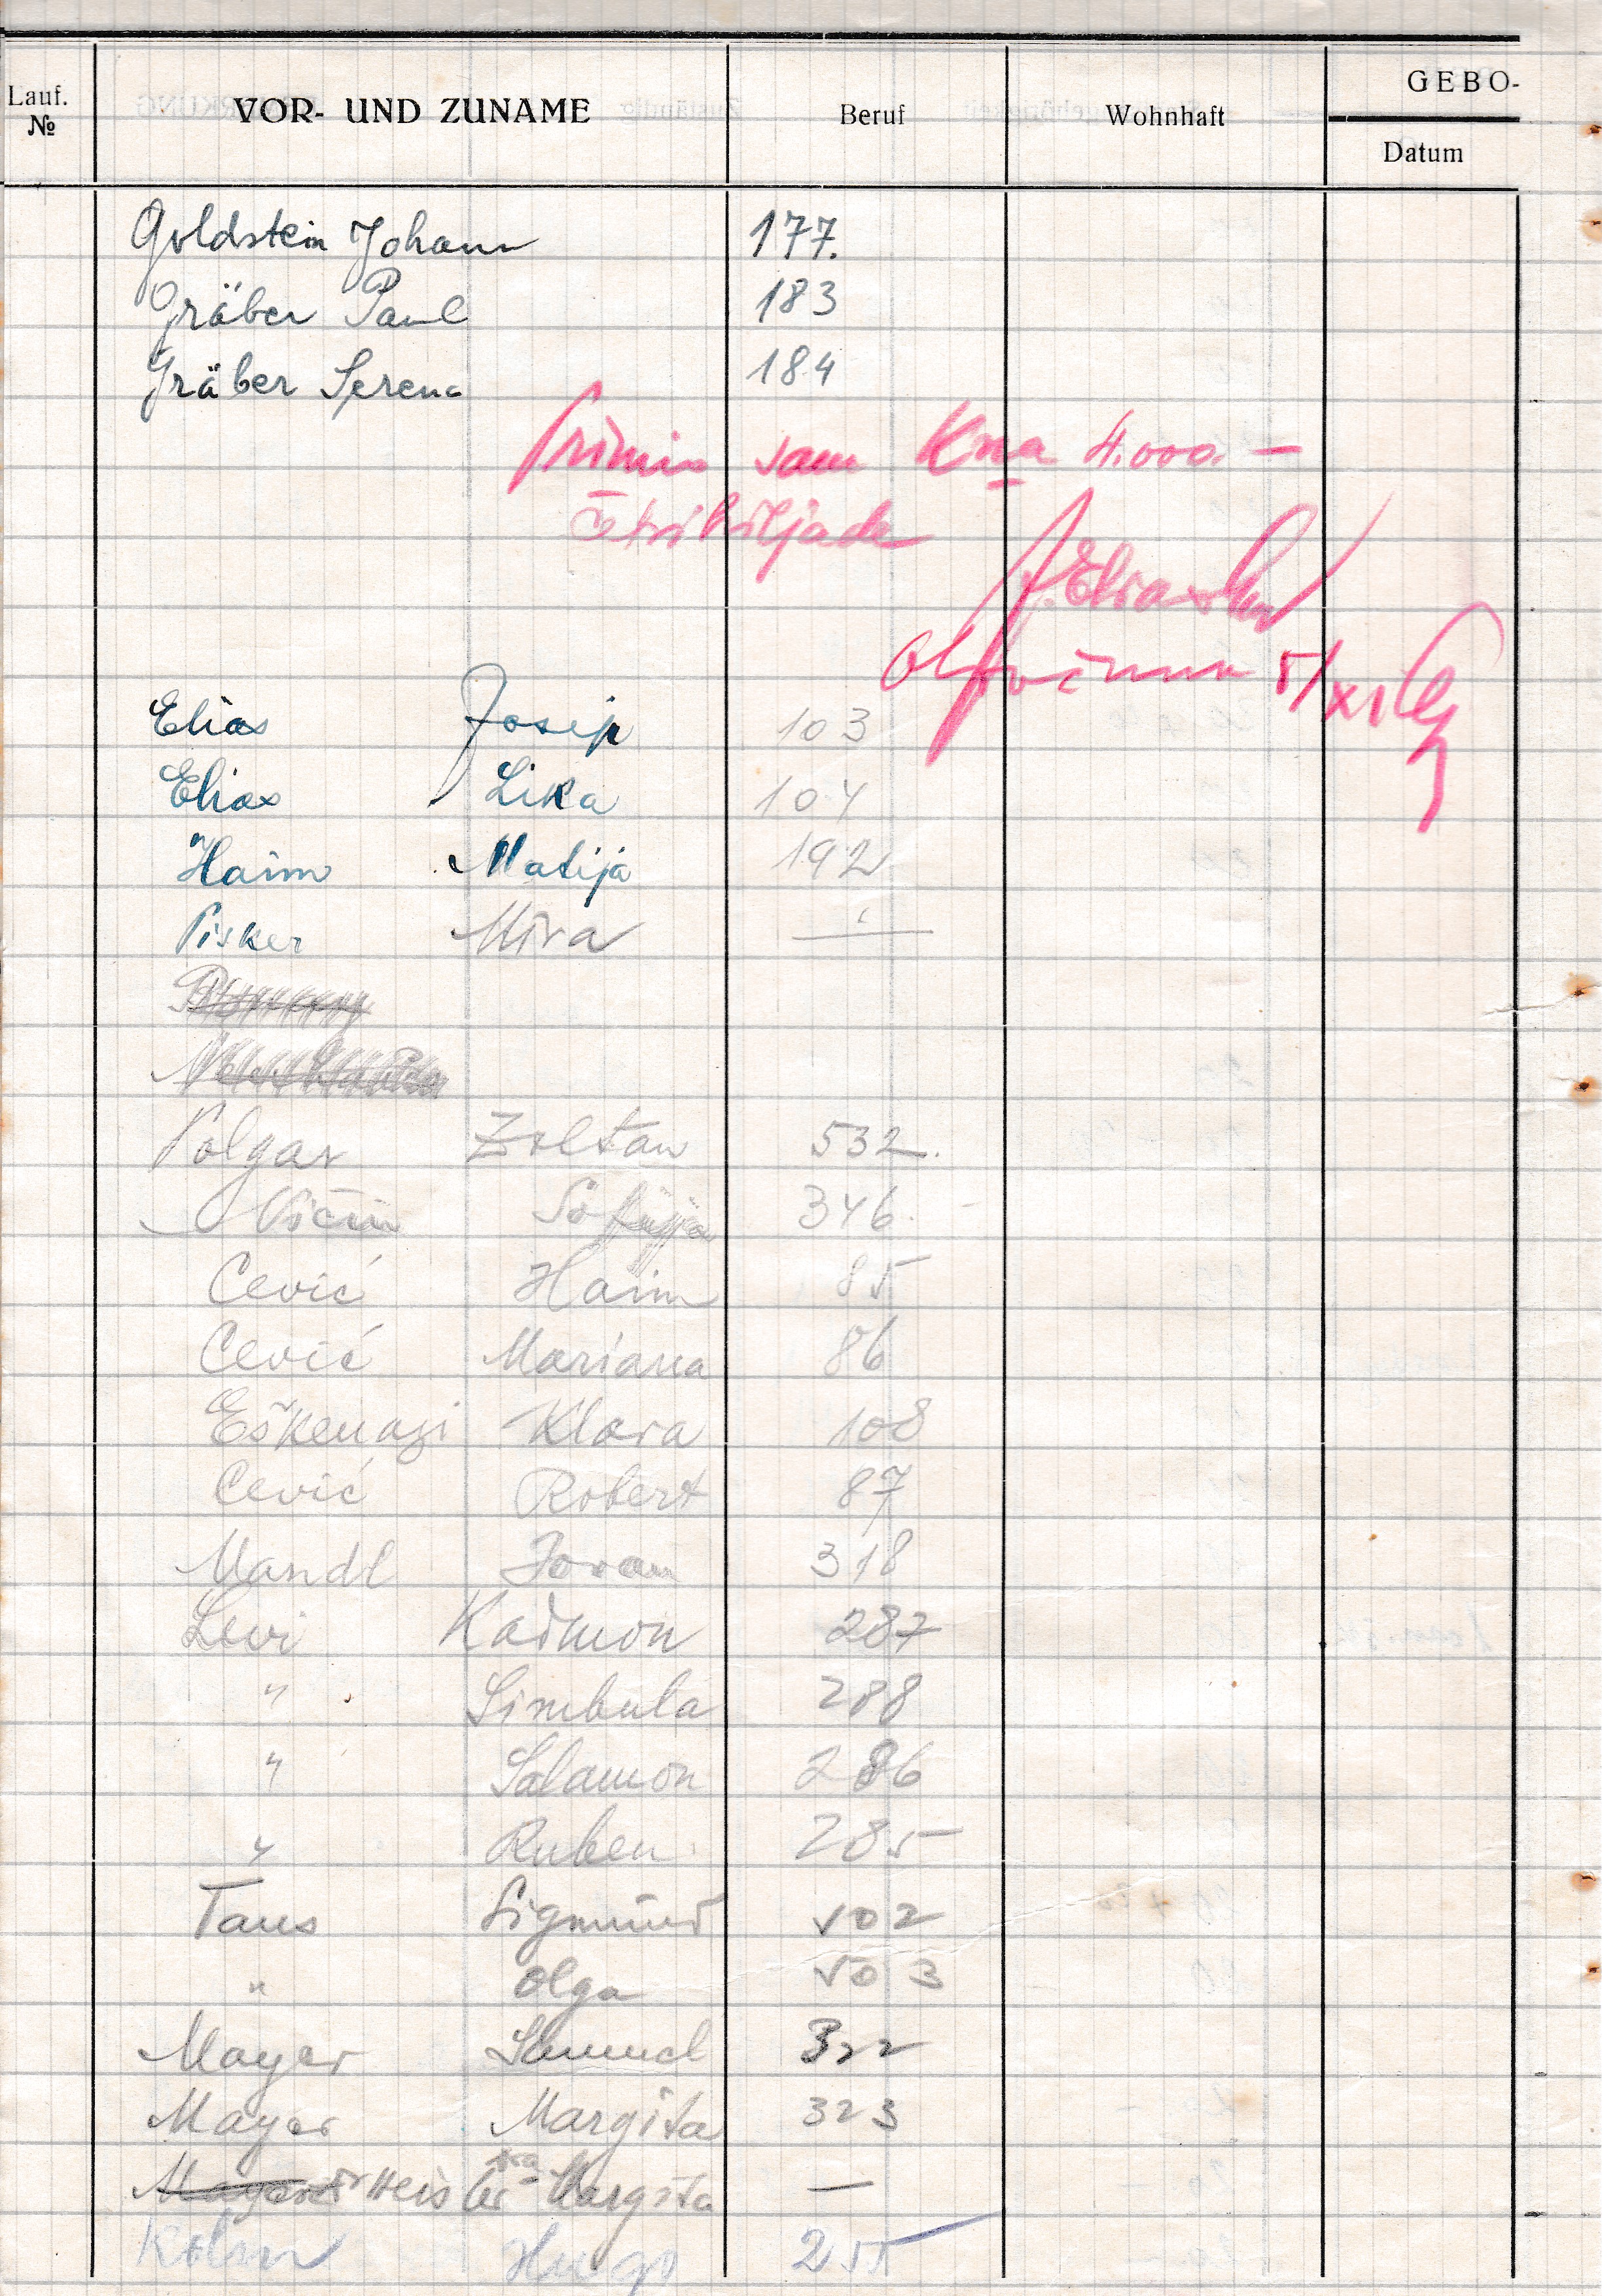 Lauf. №
VOR- UND ZUNAME
Beruf
Wohnhaft
GEBO-
Datum
Goldstein Johann 177.
Gräber Paul 183
Gräber Serena 184
Primio sam Kna 4.000.—
četiri hiljade
5/XI
Elias Josip 103
Elias Lika 104
Haim Matija 192
Pisker Mira —
Polgar Zoltan 532.
346.
Cević Haim 85
Cević Mariana 86
Eškenazi Klara 108
Cević Robert 87
Mandl Jovan 318
Levi Kadmon 287
" Simbula 288
" Salamon 286
" Ruben 285
Taus Sigmund 502
" Olga 503
Mayer Samuel 322
Mayer Margita 323
Margita —
Kohn Hugo 255